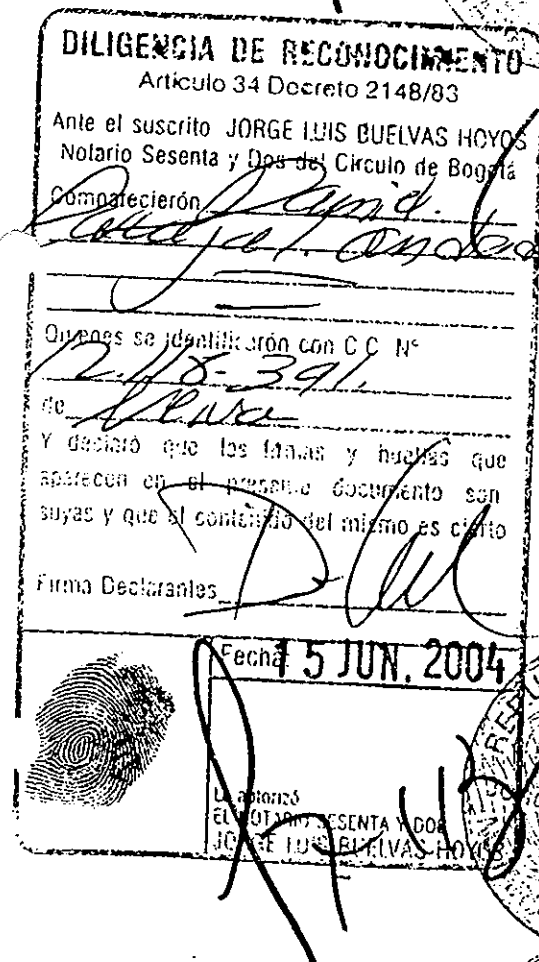 DILIGENCIA DE RECONOCIMIENTO
Artículo 34 Decreto 2148/83
Ante el suscrito JORGE LUIS BUELVAS HOYOS
Notario Sesenta y Dos del Circulo de Bogotá
Comparecierón David.
Quienes se identificarón con C C Nº
12.118-391.
de Neiva
Y declaró que las firmas y huellas que
aparecen en el presente documento son
suyas y que el contenido del mismo es cierto
Firma Declarantes
Fecha: 15 JUN. 2004
Lo autorizó
EL NOTARIO SESENTA Y DOS
JORGE LUIS BUELVAS HOYOS